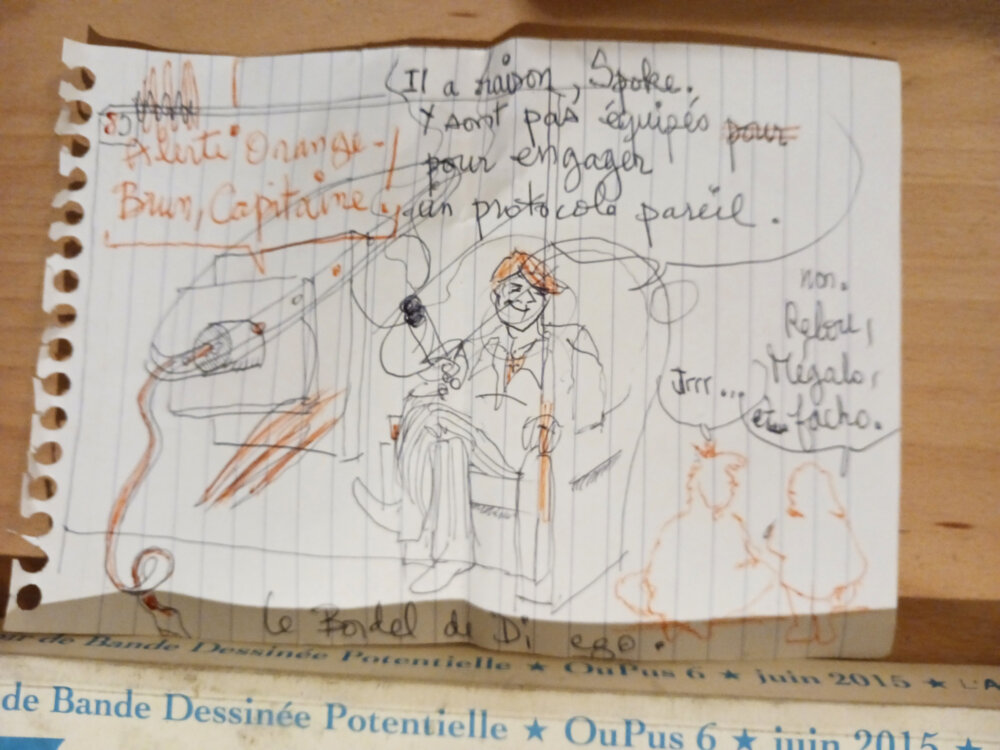 Alerte Orange-
Brun, Capitaine !
Il a raison, Spoke.
Y sont pas équipés pour
pour engager
un protocole pareil.
Jrrr...
non.
Mégalo,
et facho.
Le Bordel de Di ego.
de Bande Dessinée Potentielle ★ OuPus 6 ★ juin 2015 ★ L'A
de Bande Dessinée Potentielle ★ OuPus 6 ★ juin 2015 ★